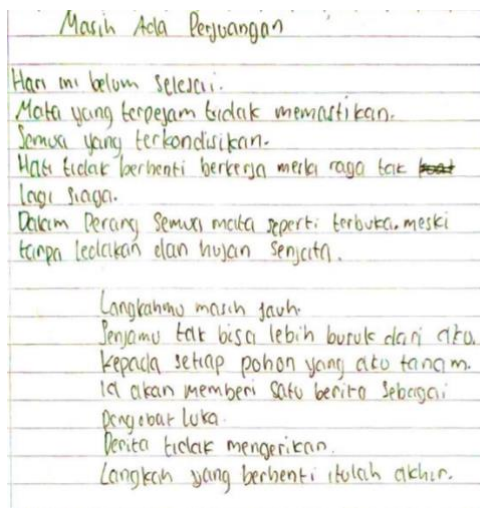 Masih Ada Perjuangan
Hari ini belum selesai.
Mata yang terpejam tidak memastikan.
Semua yang terkondisikan.
Hati tidak berhenti berkerja meski raga tak
lagi siaga.
Dalam Perang semua mata seperti terbuka. meski
tanpa ledakan dan hujan senjata.
Langkahmu masih jauh.
Senjamu tak bisa lebih buruk dari aku.
Kepada setiap pohon yang aku tanam.
Ia akan memberi satu berita sebagai
Pengobar Luka.
Derita tidak mengerikan.
Langkah yang berhenti itulah akhir.